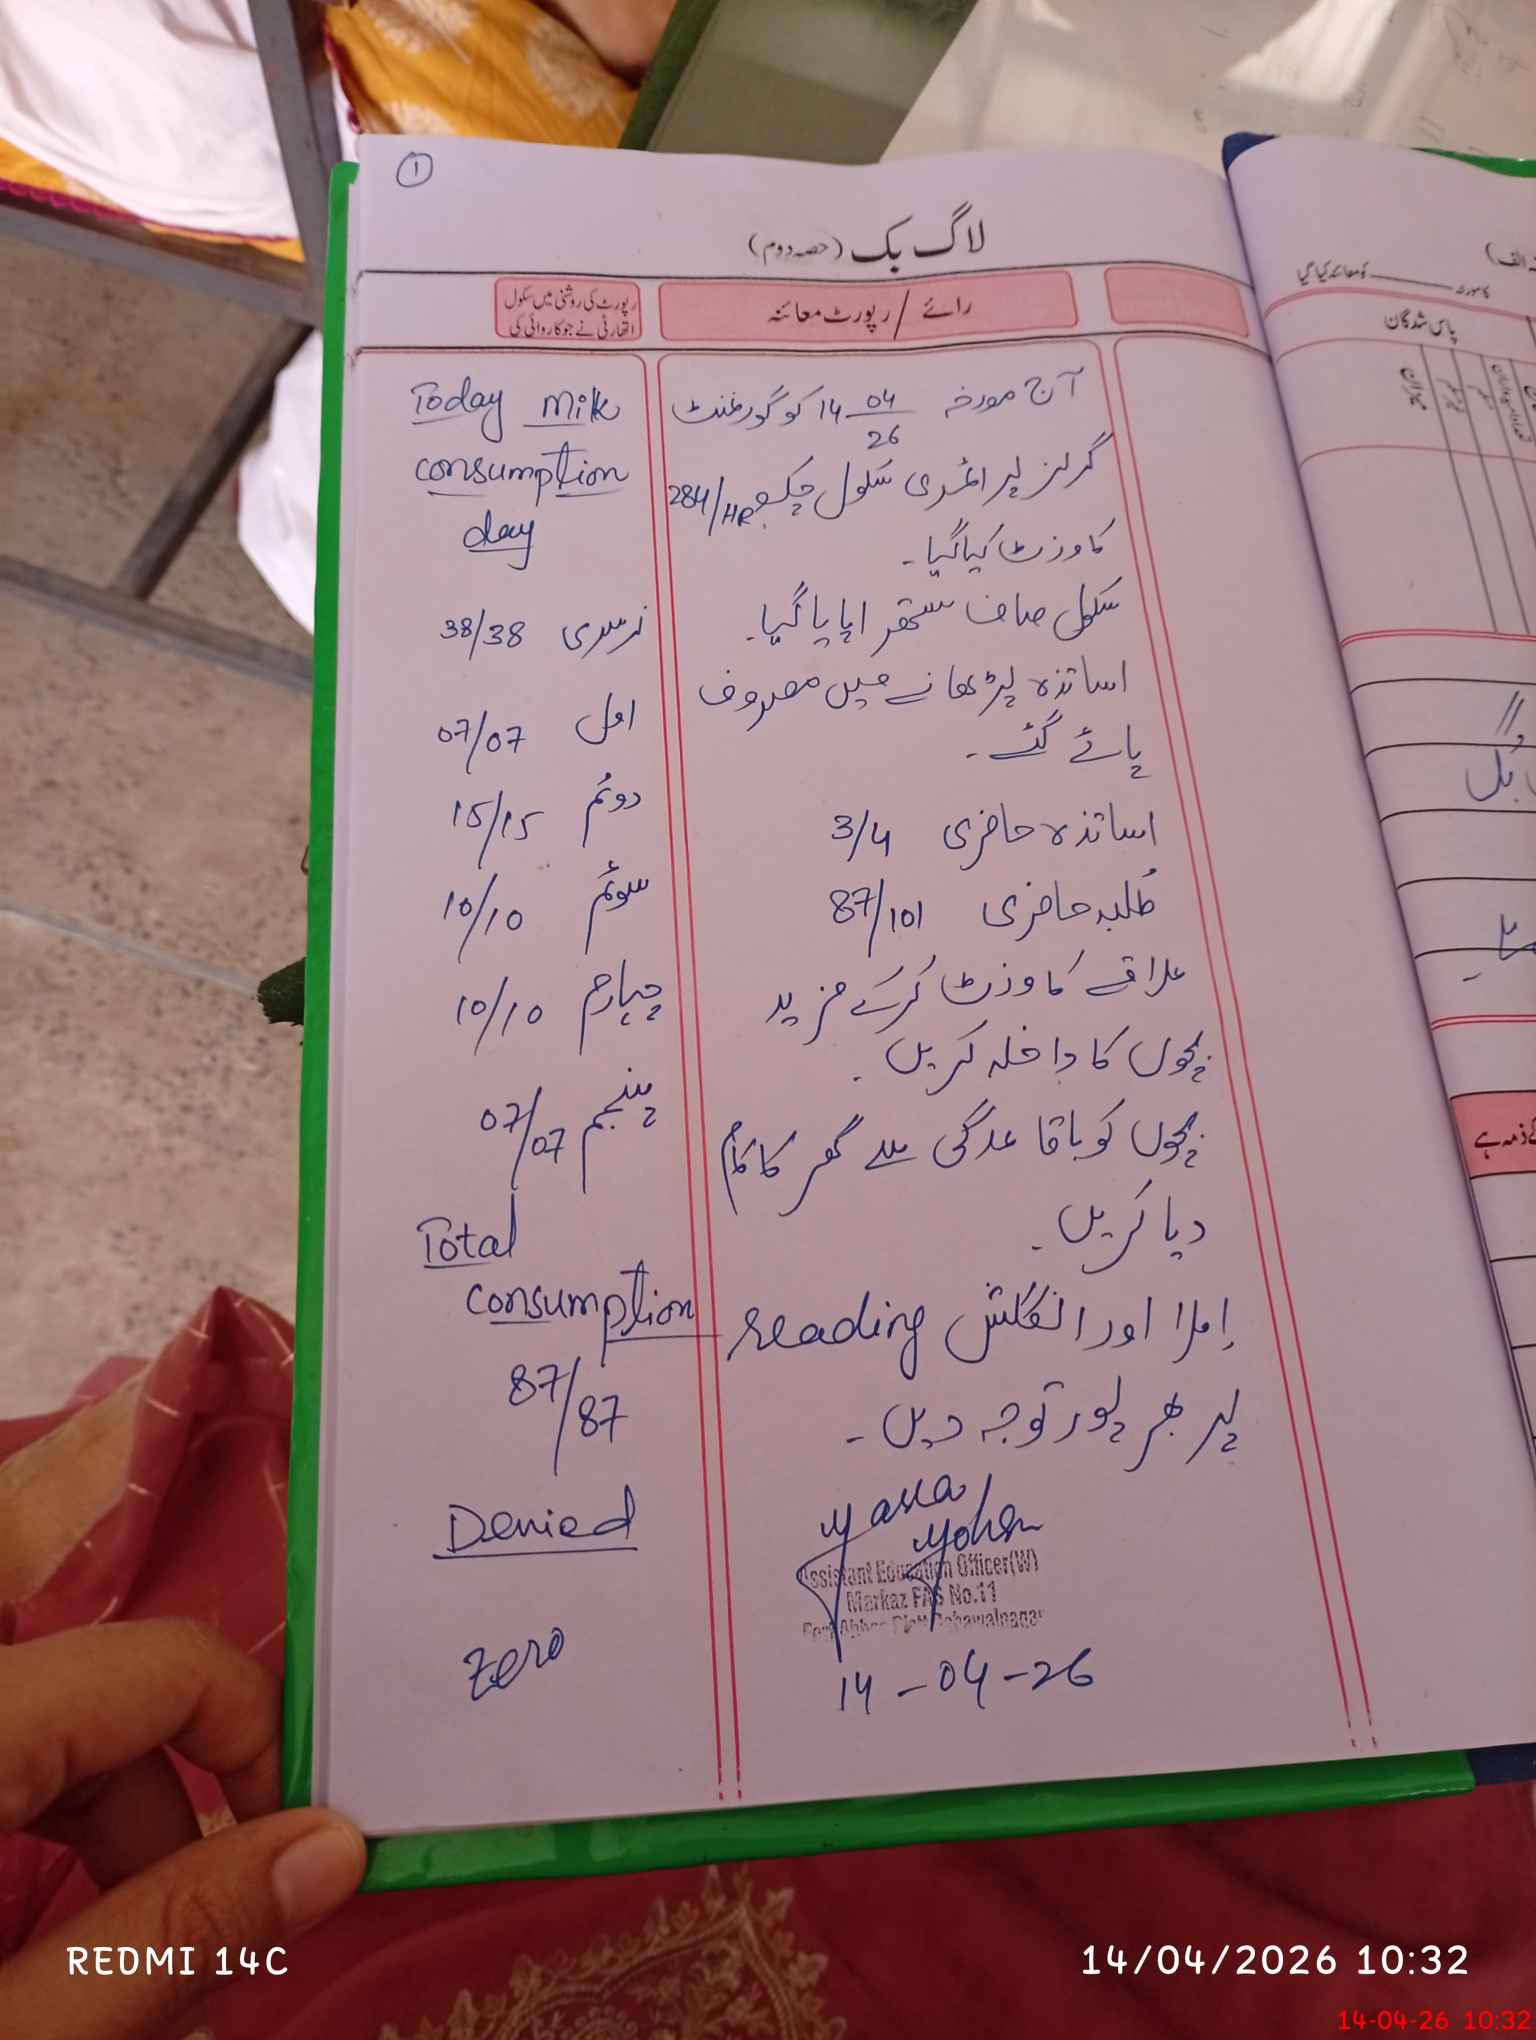 ۱
لاگ بک (حصہ دوم)
رائے / رپورٹ معائنہ
رپورٹ کی روشنی میں سکول
اتھارٹی نے جو کاروائی کی
آج مورخہ 14-04-26 کو گورنمنٹ
گرلز پرائمری سکول چک 284/HR
کا وزٹ کیا گیا۔
سکول صاف ستھرا پایا گیا۔
اساتذہ پڑھانے میں مصروف
پائے گئے۔
اساتذہ حاضری 3/4
طلبہ حاضری 87/101
علاقے کا وزٹ کرکے مزید
بچوں کا داخلہ کریں۔
بچوں کو باقاعدگی سے گھر کا کام
دیا کریں۔
املا اور انگلش reading
پر بھرپور توجہ دیں۔
Assistant Education Officer(W)
Markaz FAS No.11
14-04-26
Today Milk
consumption
day
نرسری 38/38
اول 07/07
دوئم 15/15
سوئم 10/10
چہارم 10/10
پنجم 07/07
Total
consumption
87/87
Denied
Zero
کو معائنہ کیا گیا
پاس شدگان
کے ذمہ ہے
REDMI 14C
14/04/2026 10:32
14-04-26 10:32